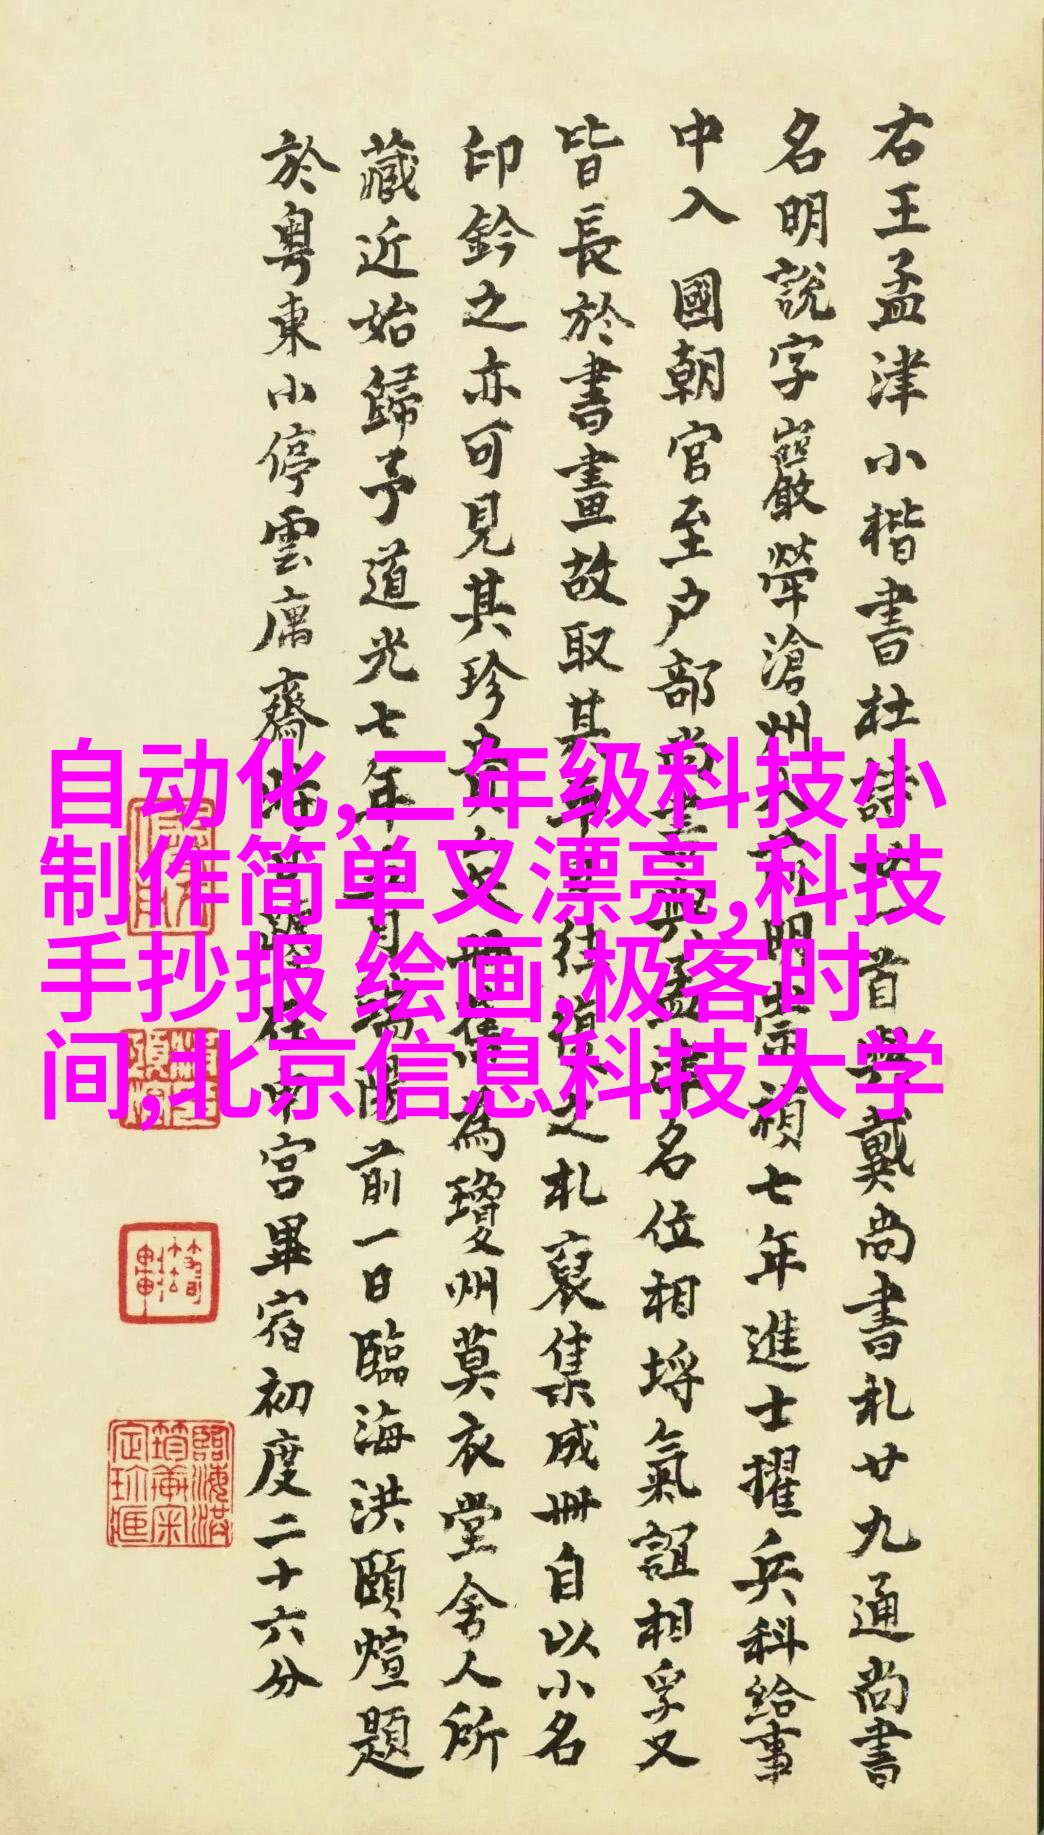 右王孟津小楷書杜詩首與戴尚書札廿九通尚書
名明說字巖犖滄州人前明崇禎七年進士擢兵科給事
中入國朝官至户部尚書與孟津名位相埒氣誼相孚又
皆長於書畫故取其往復之札裒集成冊自以小名
印鈐之亦可見其珍貴舊為瓊州莫衣堂舍人所
藏近始歸予道光七年端陽前一日臨海洪頤煊題
於粵東小停雲庽齋時在中宮畢宿初度二十六分
自动化,二年级科技小
制作简单又漂亮,科技
手抄报 绘画,极客时
间,北京信息科技大学